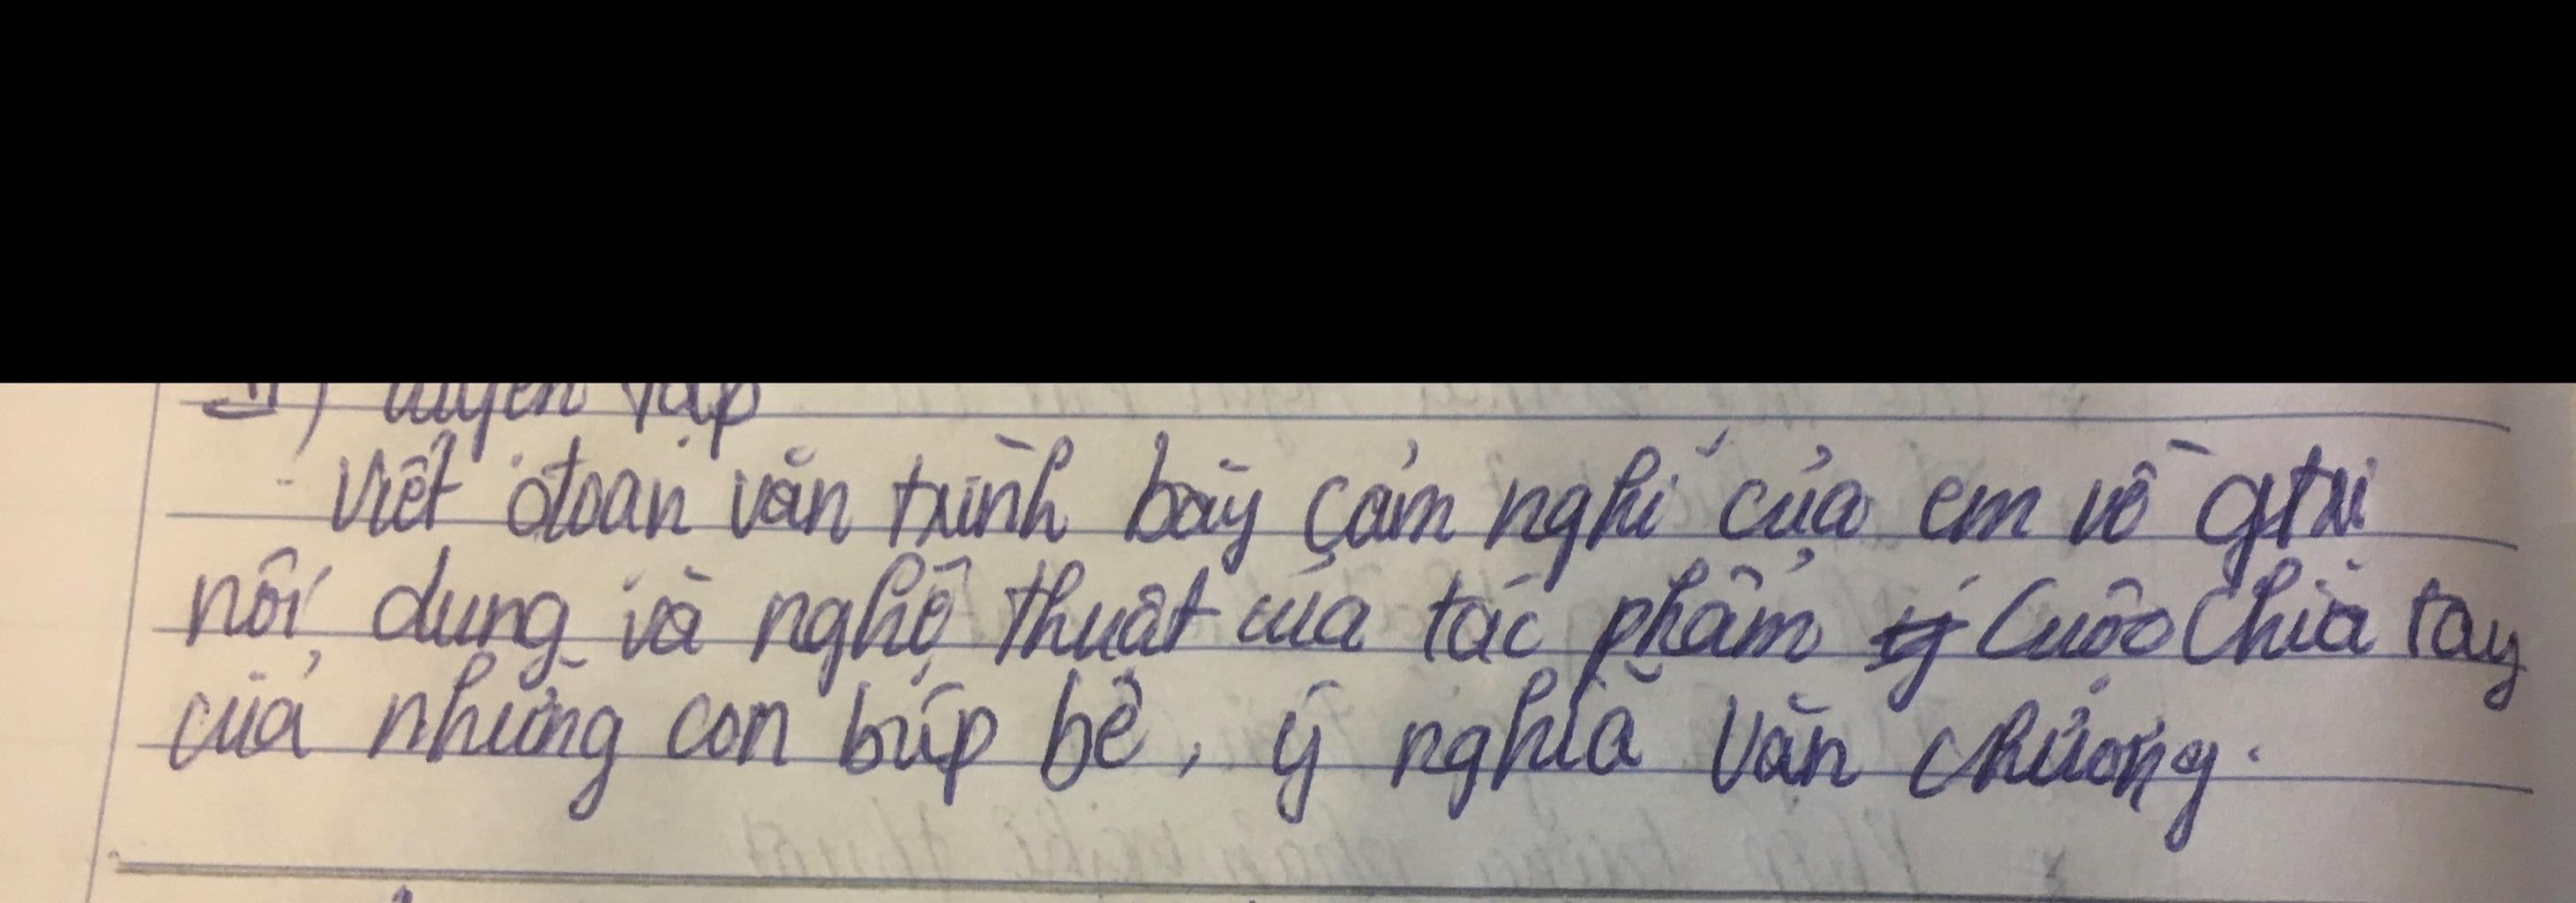 II) Luyện tập
- Viết đoạn văn trình bày cảm nghĩ của em về gtrị
nội dung và nghệ thuật của tác phẩm Cuộc Chia tay
của những con búp bê, ý nghĩa văn chương.